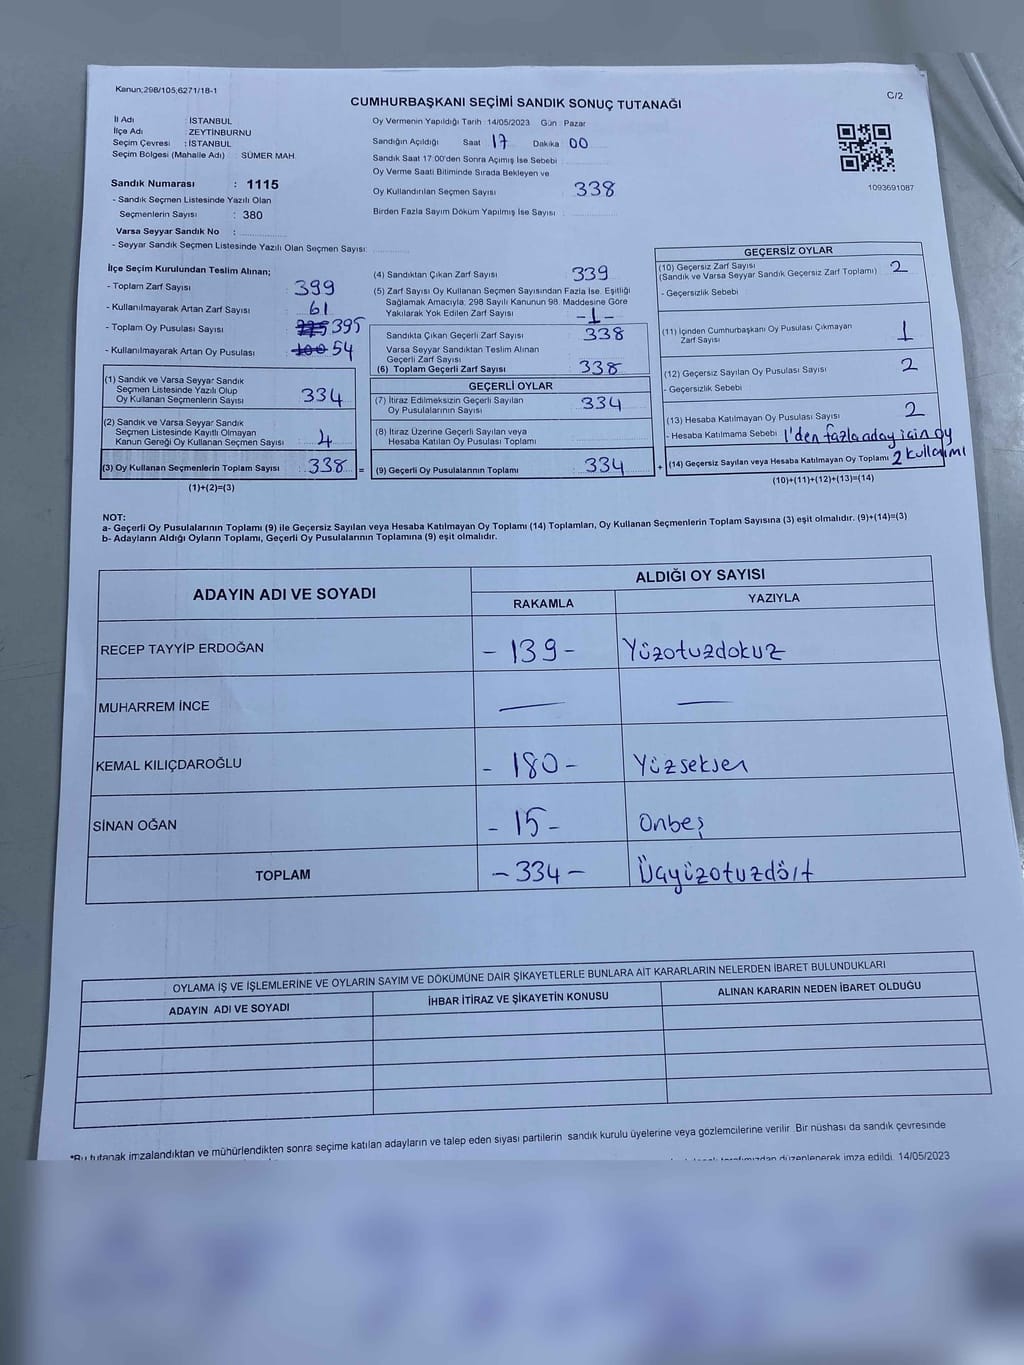 Kanun;298/105;6271/18-1
CUMHURBAŞKANI SEÇİMİ SANDIK SONUÇ TUTANAĞI
C/2
İl Adı : İSTANBUL
İlçe Adı ZEYTİNBURNU
Seçim Çevresi : İSTANBUL
Seçim Bölgesi (Mahalle Adı) SÜMER MAH.
Sandık Numarası : 1115
- Sandık Seçmen Listesinde Yazılı Olan
Seçmenlerin Sayısı : 380
Varsa Seyyar Sandık No :
- Seyyar Sandık Seçmen Listesinde Yazılı Olan Seçmen Sayısı:
Oy Vermenin Yapıldığı Tarih :14/05/2023 Gün : Pazar
Sandığın Açıldığı Saat 17 Dakika 00
Sandık Saat 17:00'den Sonra Açımış İse Sebebi
Oy Verme Saati Bitiminde Sırada Bekleyen ve
Oy Kullandırılan Seçmen Sayısı 338
Birden Fazla Sayım Döküm Yapılmış İse Sayısı :
1093691087
İlçe Seçim Kurulundan Teslim Alınan;
- Toplam Zarf Sayısı 399
- Kullanılmayarak Artan Zarf Sayısı : 61
- Toplam Oy Pusulası Sayısı 395
- Kullanılmayarak Artan Oy Pusulası 54
(1) Sandık ve Varsa Seyyar Sandık
Seçmen Listesinde Yazılı Olup
Oy Kullanan Seçmenlerin Sayısı : 334
(2) Sandık ve Varsa Seyyar Sandık
Seçmen Listesinde Kayıtlı Olmayan
Kanun Gereği Oy Kullanan Seçmen Sayısı : 4
(3) Oy Kullanan Seçmenlerin Toplam Sayısı : 338 =
(1)+(2)=(3)
(4) Sandıktan Çıkan Zarf Sayısı 339
(5) Zarf Sayısı Oy Kullanan Seçmen Sayısından Fazla İse, Eşitliği
Sağlamak Amacıyla; 298 Sayılı Kanunun 98. Maddesine Göre
Yakılarak Yok Edilen Zarf Sayısı -1-
Sandıkta Çıkan Geçerli Zarf Sayısı 338
Varsa Seyyar Sandıktan Teslim Alınan
Geçerli Zarf Sayısı
(6) Toplam Geçerli Zarf Sayısı : 338
GEÇERLİ OYLAR
(7) İtiraz Edilmeksizin Geçerli Sayılan
Oy Pusulalarının Sayısı : 334
(8) İtiraz Üzerine Geçerli Sayılan veya
Hesaba Katılan Oy Pusulası Toplamı :
(9) Geçerli Oy Pusulalarının Toplamı : 334 +
GEÇERSİZ OYLAR
(10) Geçersiz Zarf Sayısı
(Sandık ve Varsa Seyyar Sandık Geçersiz Zarf Toplamı) : 2
- Geçersizlik Sebebi
(11) İçinden Cumhurbaşkanı Oy Pusulası Çıkmayan
Zarf Sayısı 1
(12) Geçersiz Sayılan Oy Pusulası Sayısı : 2
- Geçersizlik Sebebi
(13) Hesaba Katılmayan Oy Pusulası Sayısı : 2
- Hesaba Katılmama Sebebi 1'den fazla aday için oy
(14) Geçersiz Sayılan veya Hesaba Katılmayan Oy Toplamı 2 kullanımı
(10)+(11)+(12)+(13)=(14)
NOT:
a- Geçerli Oy Pusulalarının Toplamı (9) ile Geçersiz Sayılan veya Hesaba Katılmayan Oy Toplamı (14) Toplamları, Oy Kullanan Seçmenlerin Toplam Sayısına (3) eşit olmalıdır. (9)+(14)=(3)
b- Adayların Aldığı Oyların Toplamı, Geçerli Oy Pusulalarının Toplamına (9) eşit olmalıdır.
ADAYIN ADI VE SOYADI
ALDIĞI OY SAYISI
RAKAMLA YAZIYLA
RECEP TAYYİP ERDOĞAN - 139 - Yüzotuzdokuz
MUHARREM İNCE — —
KEMAL KILIÇDAROĞLU - 180 - Yüzseksen
SİNAN OĞAN - 15 - Onbeş
TOPLAM - 334 - Üçyüzotuzdört
OYLAMA İŞ VE İŞLEMLERİNE VE OYLARIN SAYIM VE DÖKÜMÜNE DAİR ŞİKAYETLERLE BUNLARA AİT KARARLARIN NELERDEN İBARET BULUNDUKLARI
ADAYIN ADI VE SOYADI İHBAR İTİRAZ VE ŞİKAYETİN KONUSU ALINAN KARARIN NEDEN İBARET OLDUĞU
*Bu tutanak imzalandıktan ve mühürlendikten sonra seçime katılan adayların ve talep eden siyasi partilerin sandık kurulu üyelerine veya gözlemcilerine verilir. Bir nüshası da sandık çevresinde
tarafımızdan düzenlenerek imza edildi. 14/05/2023